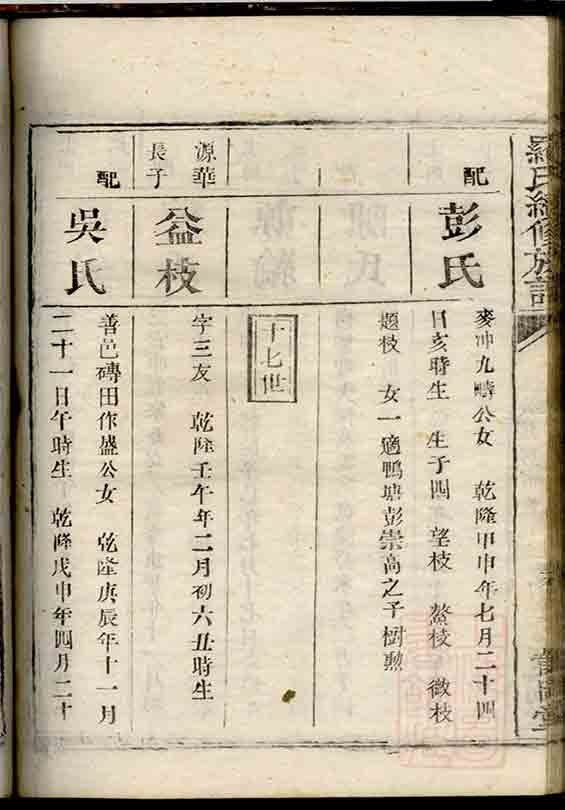 羅氏續修族譜
配
彭氏
麥冲九疇公女 乾隆甲申年七月二十四
日亥時生 生子四 望枝 鰲枝 徵枝
題枝 女一適鴨塘彭崇高之子樹勲
十七世
源華
長子
益枝
字三友 乾隆壬午年二月初六丑時生
配
吳氏
善邑磚田作盛公女 乾隆庚辰年十一月
二十一日午時生 乾隆戊申年四月二十